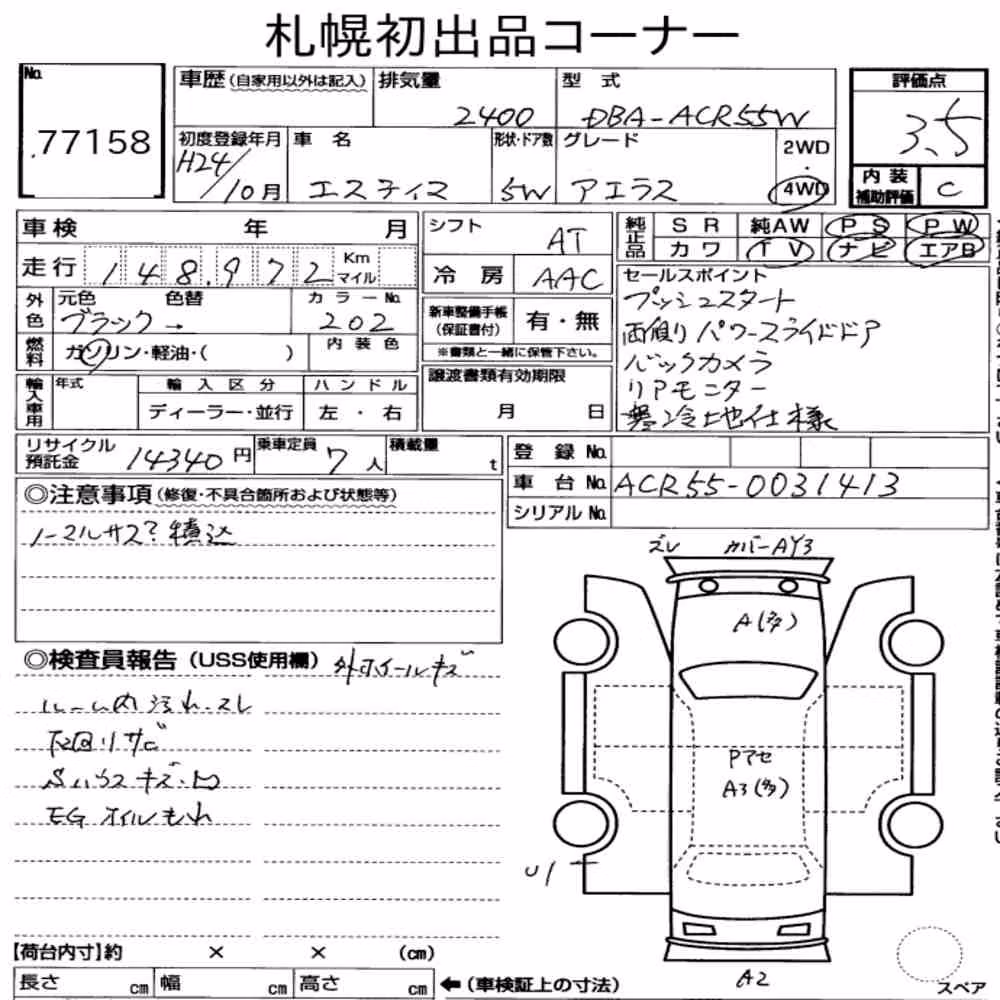 札幌初出品コーナー
No. 77158
車歴(自家用以外は記入) 排気量 2400 型式 DBA-ACR55W
評価点 3.5
初度登録年月 H24/10月 車名 エスティマ 形状・ドア数 5W グレード アエラス 2WD・4WD
内装補助評価 C
車検 年 月
シフト AT
純正品 SR 純AW PS PW
カワ TV ナビ エアB
走行 148,972 Km マイル
冷房 AAC
セールスポイント
プッシュスタート
両側リパワースライドドア
バックカメラ
リアモニター
寒冷地仕様
外色 元色 ブラック→ 色替 カラーNo. 202
新車整備手帳(保証書付) 有・無
※書類と一緒に保管下さい。
燃料 ガソリン・軽油・( ) 内装色
譲渡書類有効期限 月 日
輸入車用 年式 輸入区分 ハンドル
ディーラー・並行 左・右
リサイクル預託金 14340円 乗車定員 7人 積載量 t
登録No.
車台No. ACR55-0031413
シリアルNo.
◎注意事項(修復・不具合箇所および状態等)
ノーマルサス?積込
◎検査員報告(USS使用欄) 外ホイールキズ
ルーム内汚れ・スレ
下回りサビ
Sハウスキズ・凹
EGオイルもれ
ズレ カバーAY3
A(多)
Pアセ
A3(多)
U1
A2
スペア
【荷台内寸】約 × × (cm)
長さ cm 幅 cm 高さ cm ←(車検証上の寸法)